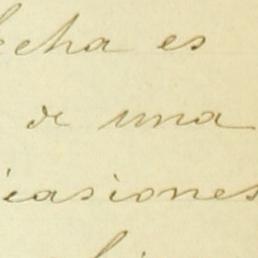 fecha es
de una
icasiones